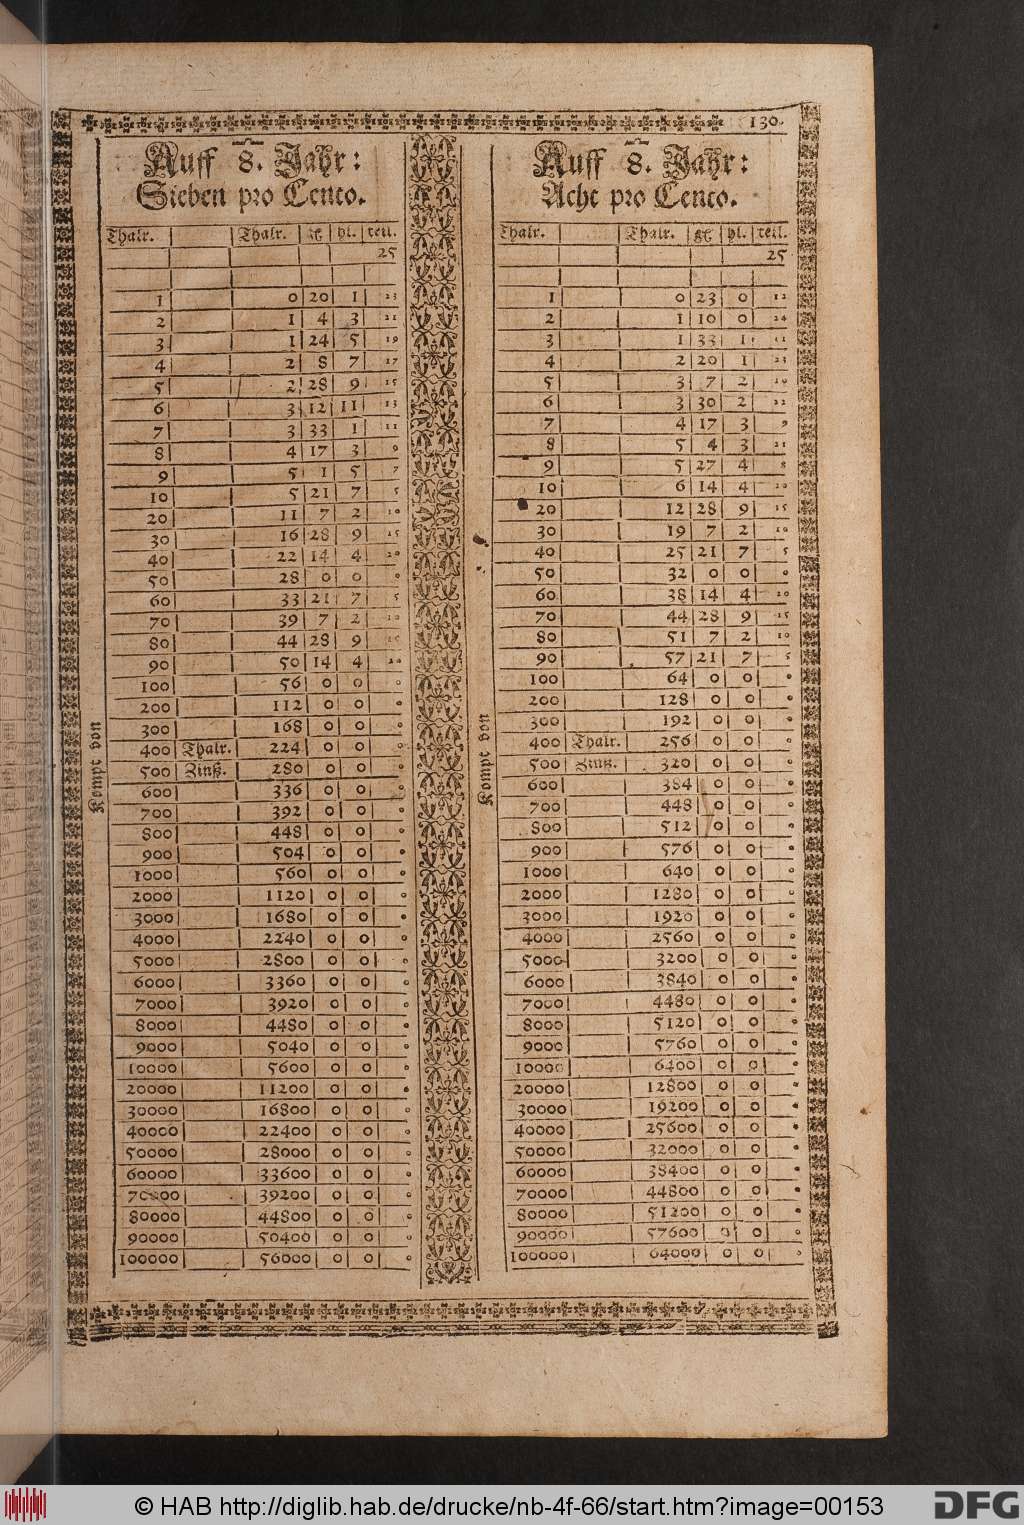 130.
Auff 8. Jahr:
Sieben pro Cento.
Thalr. Thalr. gℓ hl. teil.
25
1 0 20 1 23
2 1 4 3 21
3 1 24 5 19
4 2 8 7 17
5 2 28 9 15
6 3 12 11 13
7 3 33 1 11
8 4 17 3 9
9 5 1 5 7
10 5 21 7 5
20 11 7 2 10
30 16 28 9 15
40 22 14 4 20
50 28 0 0 0
60 33 21 7 5
70 39 7 2 10
80 44 28 9 15
90 50 14 4 20
100 56 0 0 0
200 112 0 0 0
300 168 0 0 0
400 Thalr. 224 0 0 0
500 Zinß. 280 0 0 0
600 336 0 0 0
700 392 0 0 0
800 448 0 0 0
900 504 0 0 0
1000 560 0 0 0
2000 1120 0 0 0
3000 1680 0 0 0
4000 2240 0 0 0
5000 2800 0 0 0
6000 3360 0 0 0
7000 3920 0 0 0
8000 4480 0 0 0
9000 5040 0 0 0
10000 5600 0 0 0
20000 11200 0 0 0
30000 16800 0 0 0
40000 22400 0 0 0
50000 28000 0 0 0
60000 33600 0 0 0
70000 39200 0 0 0
80000 44800 0 0 0
90000 50400 0 0 0
100000 56000 0 0 0
Kompt von
Auff 8. Jahr:
Acht pro Cento.
Thalr. Thalr. gℓ hl. teil.
25
1 0 23 0 12
2 1 10 0 24
3 1 33 1 11
4 2 20 1 23
5 3 7 2 10
6 3 30 2 22
7 4 17 3 9
8 5 4 3 21
9 5 27 4 8
10 6 14 4 20
20 12 28 9 15
30 19 7 2 10
40 25 21 7 5
50 32 0 0 0
60 38 14 4 20
70 44 28 9 15
80 51 7 2 10
90 57 21 7 5
100 64 0 0 0
200 128 0 0 0
300 192 0 0 0
400 Thalr. 256 0 0 0
500 Zinß. 320 0 0 0
600 384 0 0 0
700 448 0 0 0
800 512 0 0 0
900 576 0 0 0
1000 640 0 0 0
2000 1280 0 0 0
3000 1920 0 0 0
4000 2560 0 0 0
5000 3200 0 0 0
6000 3840 0 0 0
7000 4480 0 0 0
8000 5120 0 0 0
9000 5760 0 0 0
10000 6400 0 0 0
20000 12800 0 0 0
30000 19200 0 0 0
40000 25600 0 0 0
50000 32000 0 0 0
60000 38400 0 0 0
70000 44800 0 0 0
80000 51200 0 0 0
90000 57600 0 0 0
100000 64000 0 0 0
Kompt von
© HAB http://diglib.hab.de/drucke/nb-4f-66/start.htm?image=00153
DFG